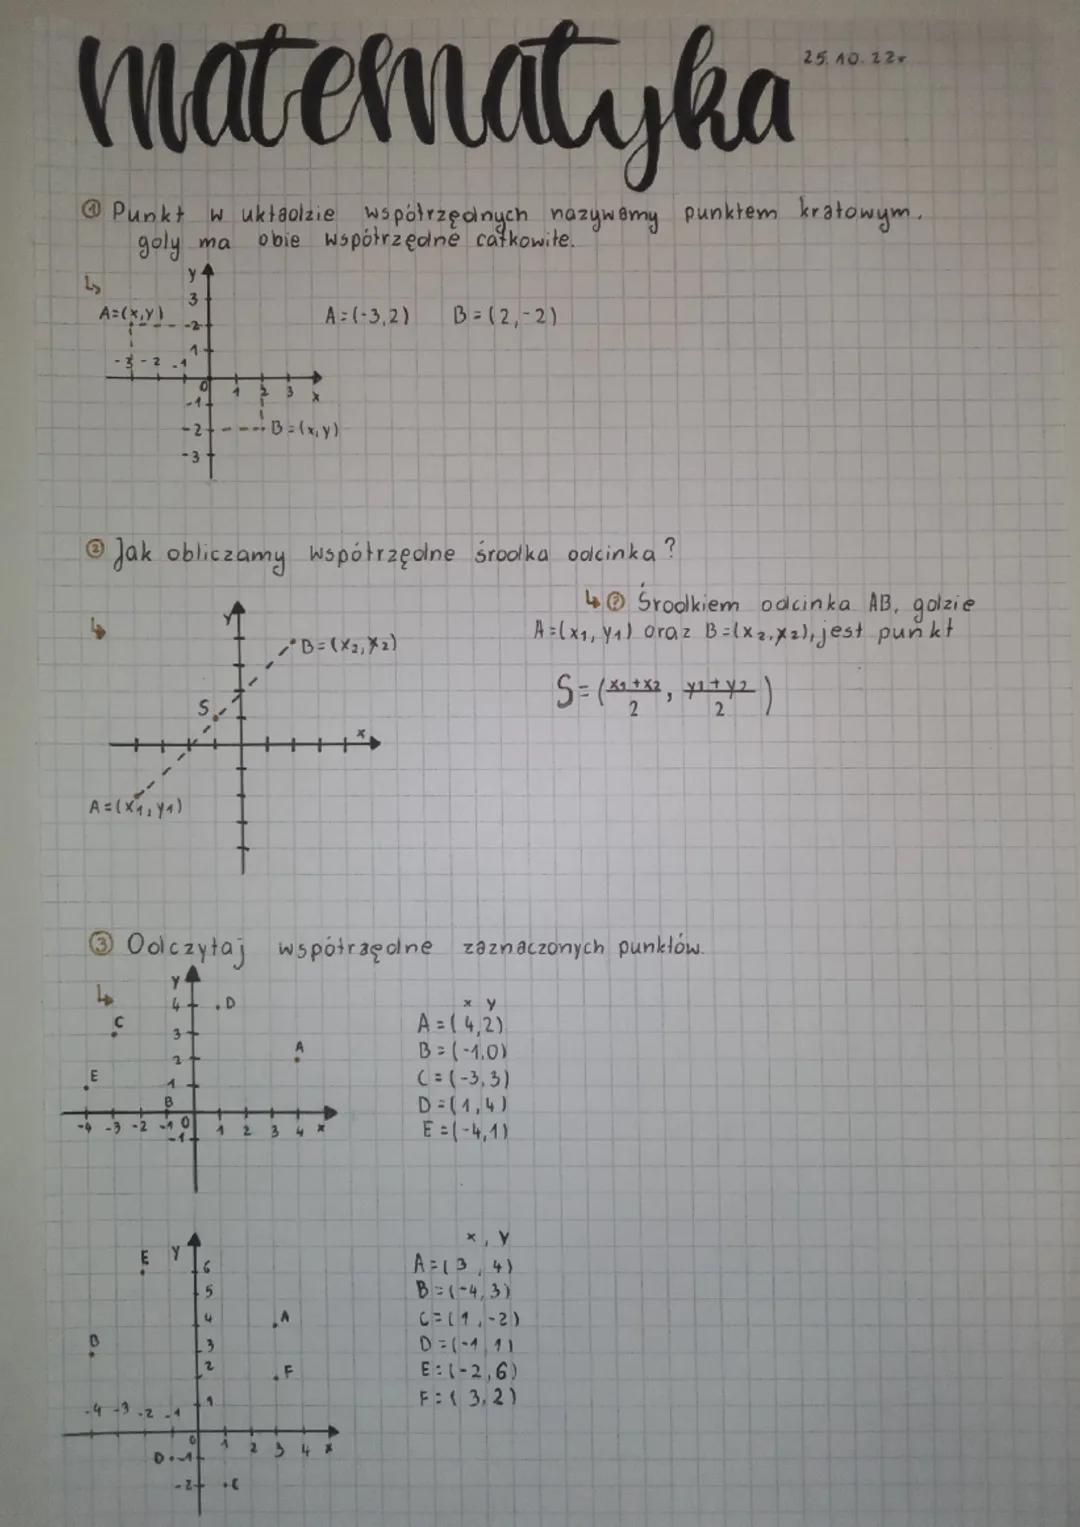 matematyka
25.10.22r
① Punkt w układzie współrzędnych nazywamy punktem kratowym,
gdy ma obie współrzędne całkowite.
↳
y
3
A=(x,y)
2
1
-3 -2 -1
0 1 2 3 x
-1
-2
B=(x,y)
-3
A=(-3,2) B=(2,-2)
② Jak obliczamy współrzędne środka odcinka?
↳
y
B=(x₂,y₂)
S
x
A=(x₁,y₁)
↳ ② Środkiem odcinka AB, gdzie
A=(x₁,y₁) oraz B=(x₂,y₂), jest punkt
S=(x₁+x₂/2, y₁+y₂/2)
③ Odczytaj współrzędne zaznaczonych punktów.
↳
y
4 .D
C
3
A
2
E
1
B
-4 -3 -2 -1 0 1 2 3 4 x
-1
x y
A=(4,2)
B=(-1,0)
C=(-3,3)
D=(1,4)
E=(-4,1)
E y
6
5
4 .A
B
3
2 .F
1
-4 -3 -2 -1
0 1 2 3 4 x
D. -1
-2 .C
x, y
A=(3,4)
B=(-4,3)
C=(1,-2)
D=(-1,1)
E=(-2,6)
F=(3,2)